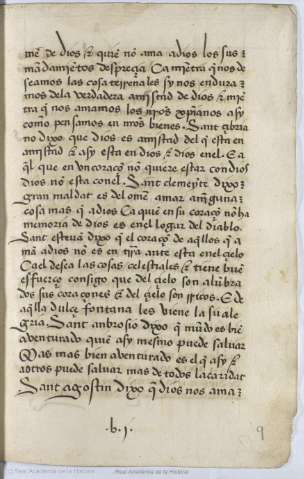 me̅ de dios ⁊ quie̅ nõ ama adios los sus
ma̅damie̅tos despreçia Ca mie̅tra q̃ nos de
seamos las cosas terrenales sy nos endura
mos dela verdadera amistad de dios ⁊ mie̅
tra q̃ nos amamos los nr̅os xp̅ianos asy
como pensamos en nr̅os bienes. Sant
no dixo que dios es amistad del q̃ esta en
amistad ⁊ asy esta en dios ⁊ dios enel. E a
q̃l que en vn coraço̅ nõ quiere estar con dios
dios nõ esta conel. Sant clemeynte dixo
gran maldat es del ome̅ amar ni̅guna
cosa mas q̃ adios Ca quie̅ en su coraço̅ nõ ha
memoria de dios es enel logar del diablo.
Sant esteua̅ dixo q̃ el coraço̅ de aq̃llos q̃ a
ma̅ adios nõ es en tr̅ra ante esta enel çielo
Ca el desea las cosas çelestriales ⁊ tiene bue̅
esfuerço consigo que del çielo son alu̅bra
dos sus coraçones ⁊ del çielo son rricos. E de
aq̃lla dulçe fontana les viene la su ale
gria. Sant ambrosio dixo q̃ mu̅do es bie̅
aventurado que asy mesmo puede saluar
Mas mas bien aventurado es el q̃ asy ⁊
aotros puede saluar mas de todos la caridat
Sant agostin dixo q̃ dios nos ama
.b. j.
9
Real Academia de la Historia
Real Academia de la Historia